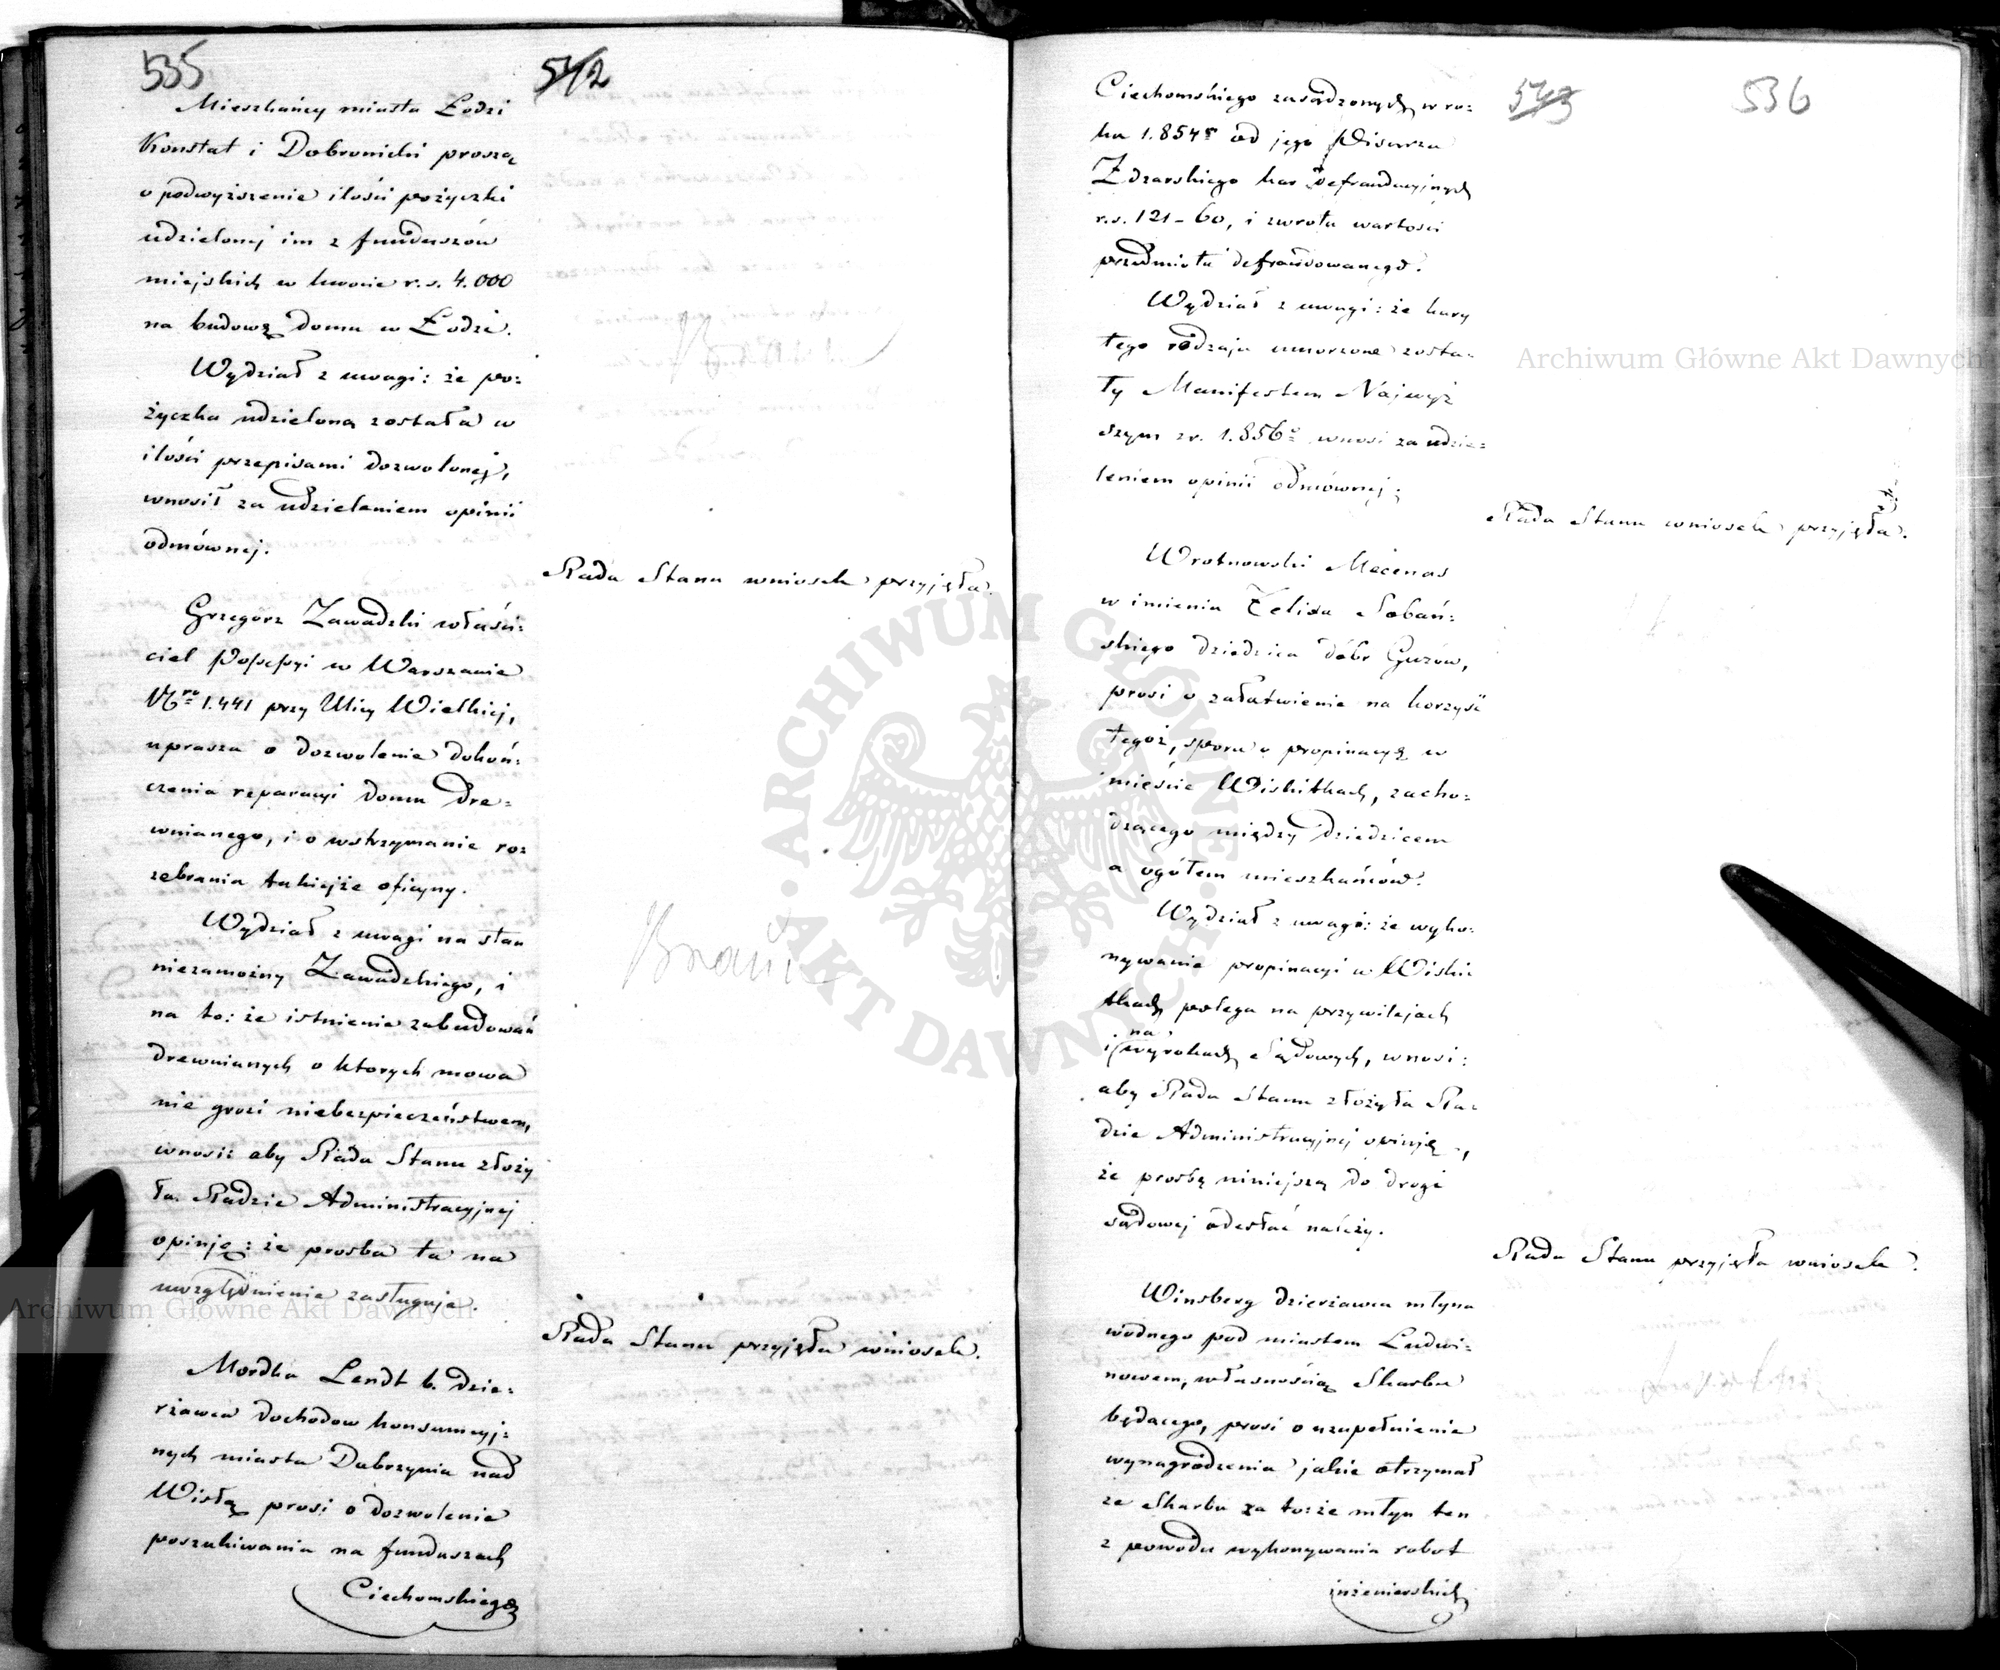 535
542
Mieszkańcy miasta Łodzi
Konstat i Dobronicki proszą
o podwyższenie ilości pożyczki
udzielonej im z funduszów
miejskich w kwocie r.s. 4.000
na budowę domu w Łodzi.
Wydział z uwagi: że po:
życzka udzieloną została w
ilości przepisami dozwolonej,
wnosił za udzieleniem opinii
odmównej.
Rada Stanu wniosek przyjęła.
Grzegorz Zawadzki właści:
ciel Possessyi w Warszawie
Nro 1.441 przy Ulicy Wielkiej,
uprasza o dozwolenie dokoń:
czenia reparacyi domu dre:
wnianego, i o wstrzymanie ro:
zebrania takiejże oficyny.
Wydział z uwagi na stan
niezamożny Zawadzkiego, i
na to: że istnienie zabudowań
drewnianych o ktorych mowa
nie grozi niebezpieczeństwem,
wnosi: aby Rada Stanu złoży
ła Radzie Administracyjnej
opinję: że prosba ta na
uwzględnienie zasługuje.
Rada Stanu przyjęła wniosek.
Mordka Lendt b. dzie:
rżawca dochodow konsumcyj:
nych miasta Dobrzynia nad
Wisłą prosi o dozwolenie
poszukiwania na funduszach
Ciechomskiego
543
536
Ciechomskiego zasądzonych w ro:
ku 1.854r od jego Pisarza
Zdzarskiego kar defraudacyjnych
r.s. 121-60, i zwrotu wartości
przedmiotu defraudowanego.
Wydział z uwagi: że kary
tego rodzaju umorzone zosta:
ły Manifestem Najwyż
szym z r. 1.856o wnosi za udzie:
leniem opinii odmównej;
Rada Stanu wniosek przyjęła.
Wrotnowski Mecenas
w imieniu Felixa Sobań:
skiego dziedzica dóbr Guzów,
prosi o załatwienie na korzyść
tegoż, sporu o propinacyę w
mieście Wiskitkach, zacho:
dzącego między dziedzicem
a ogółem mieszkańców.
Wydział z uwagi: że wyko:
nywanie propinacyi w Wiski:
tkach polega na przywilejach
i na wyrokach Sądowych, wnosi:
aby Rada Stanu złożyła Ra:
dzie Administracyjnej opinję,
że prosbę niniejszą do drogi
sądowej odesłać należy.
Rada Stanu przyjęła wniosek.
Winsberg dzierżawca młyna
wodnego pod miastem Ludwi:
nowem, własnością Skarbu
będącego, prosi o uzupełnienie
wynagrodzenia jakie otrzymał
ze Skarbu za to: że młyn ten
z powodu wykonywania robot
inżenierskich
Archiwum Główne Akt Dawnych
Archiwum Główne Akt Dawnych
ARCHIWUM GŁÓWNE AKT DAWNYCH